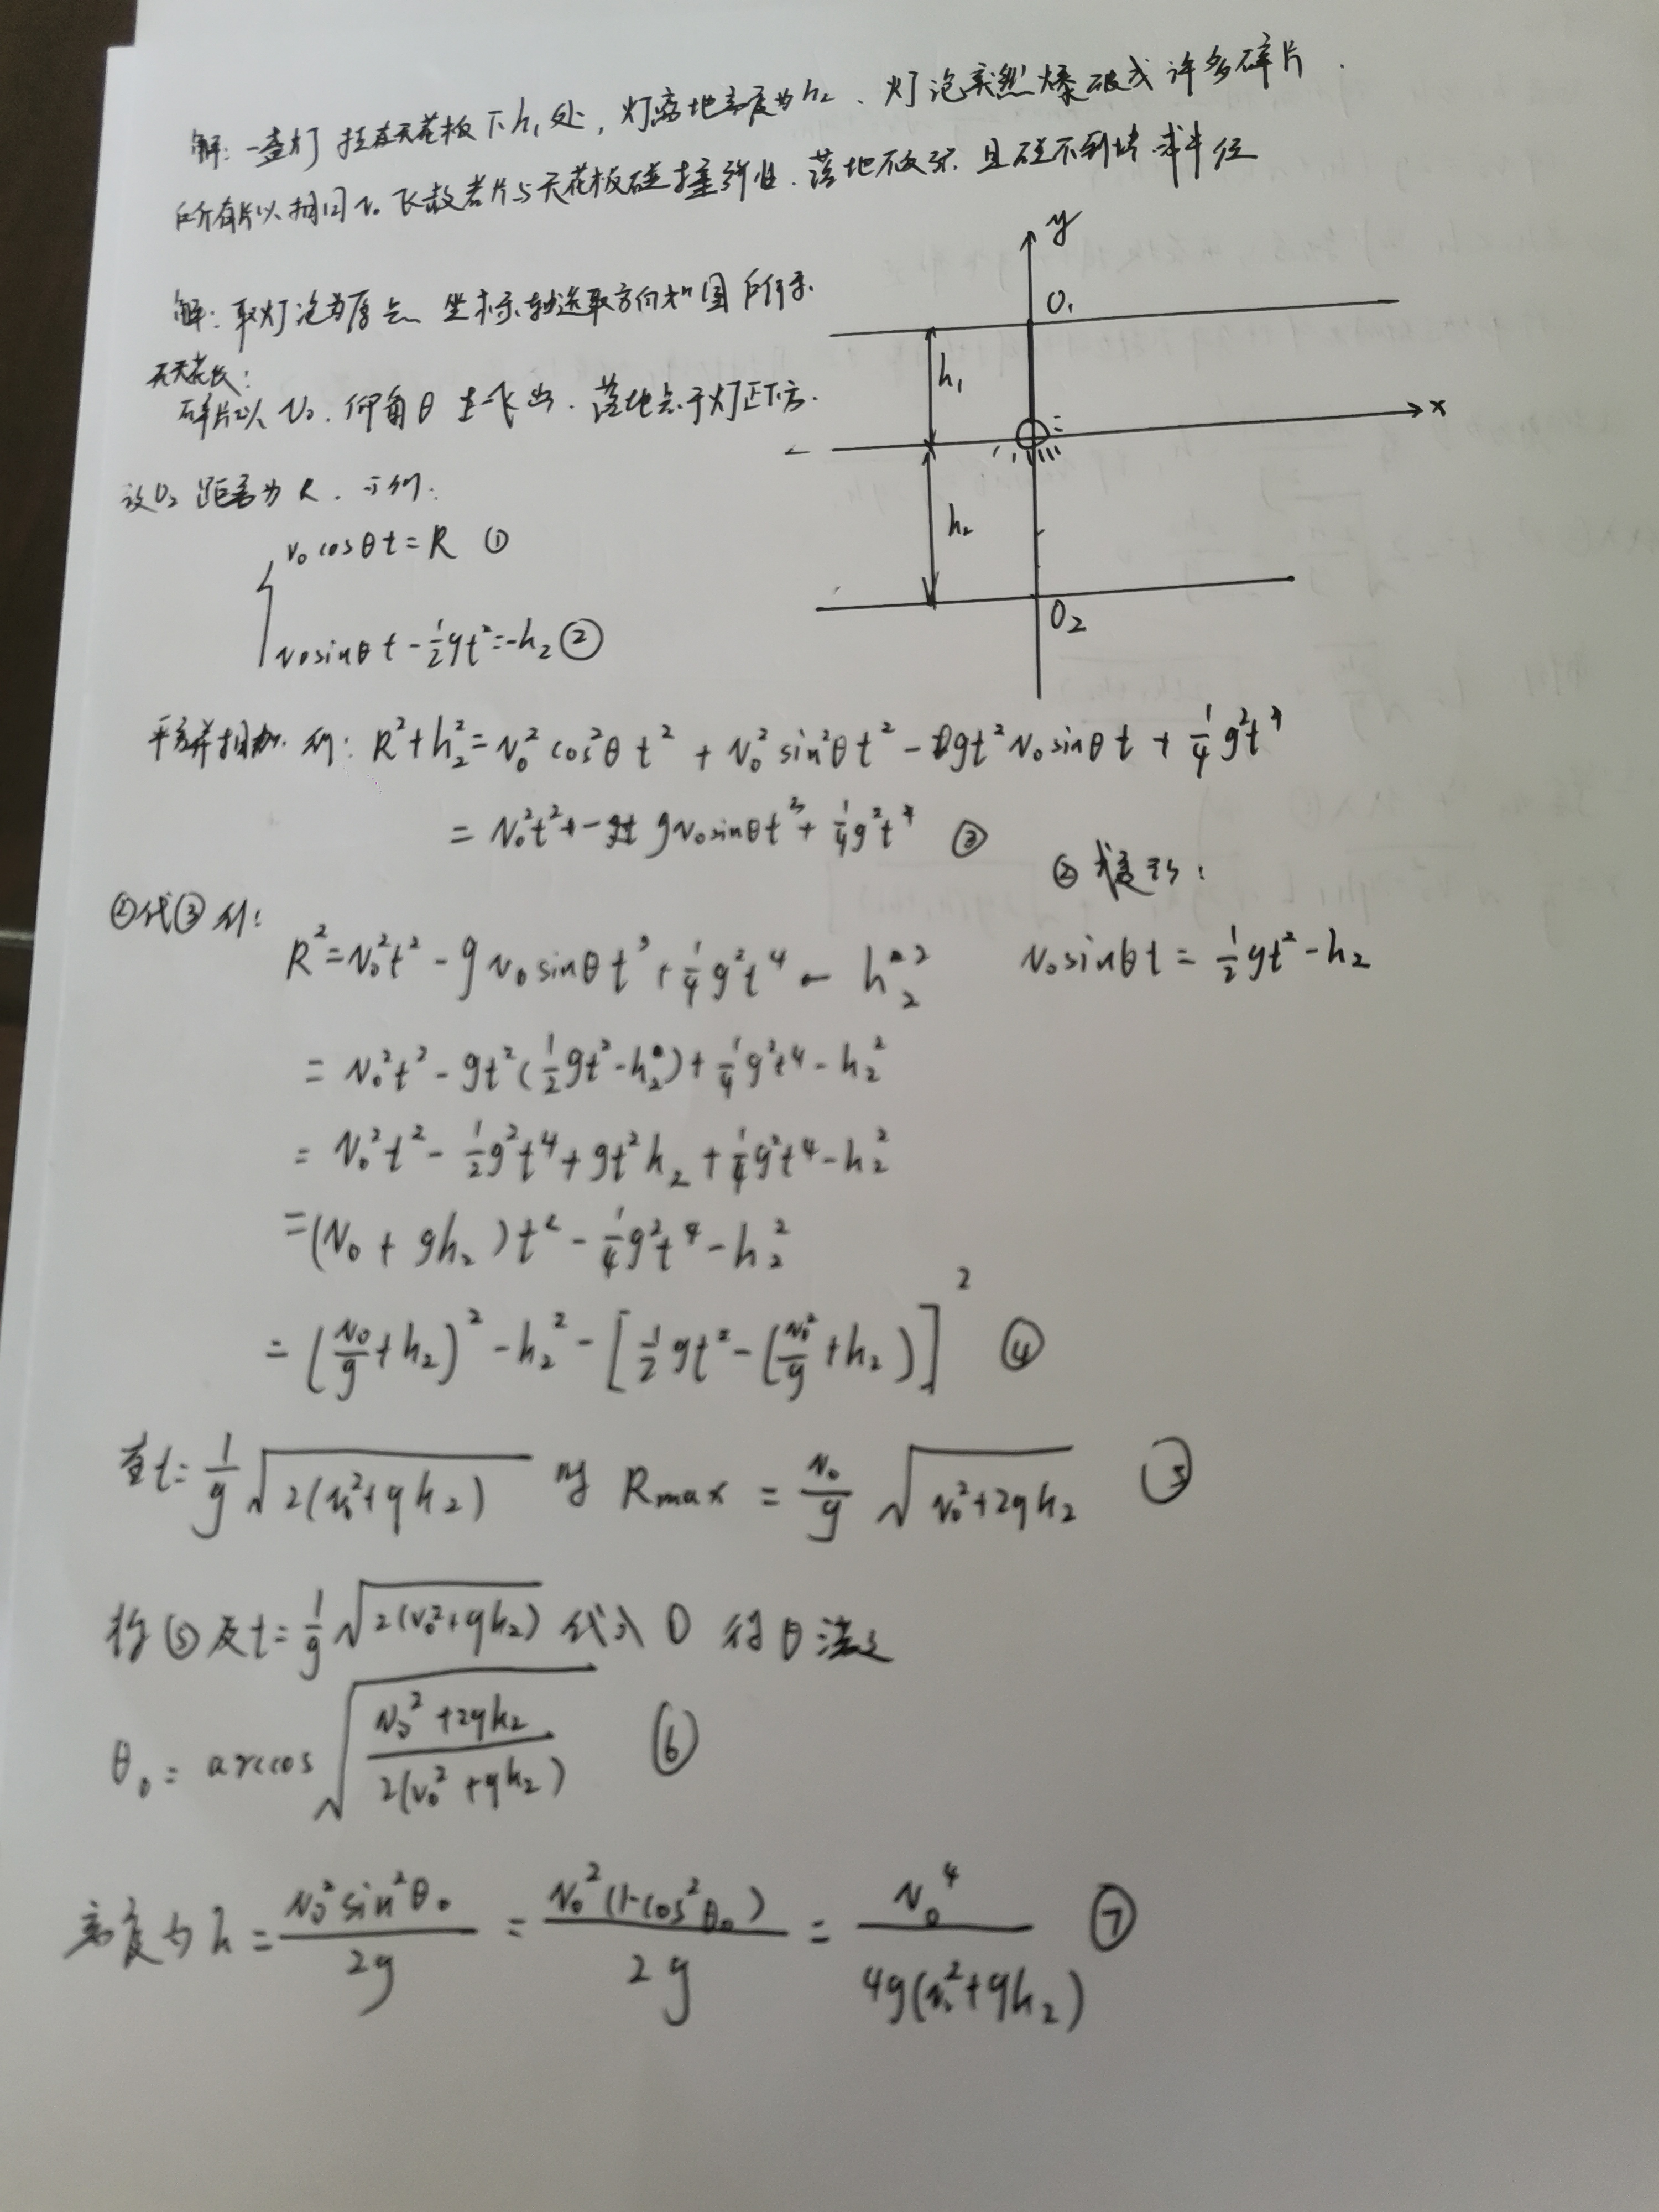 解: 一盏灯挂在天花板下h₁处, 灯离地高度为h₂、灯泡突然爆破成许多碎片.
所有碎片以相同v₀飞散若片与天花板碰撞弹性. 落地不反弹. 且碰不到墙.求半径
y
解: 取灯泡为原点 坐标轴选取方向如图所示.
O₁
无天花板:
h₁
碎片以v₀. 仰角θ 飞出. 落地点于灯正下方.
x
设O₂距离为R. 可列:
h₂
v₀cosθt=R ①
O₂
v₀sinθt-½gt²=-h₂ ②
平方并相加. 得: R²+h₂²=v₀²cos²θt²+v₀²sin²θt²-gt²v₀sinθt+¼g²t⁴
=v₀²t²+-gt gv₀sinθt³+¼g²t⁴ ③
②式变形:
②代③得:
R²=v₀²t²-gv₀sinθt³+¼g²t⁴-h₂²
v₀sinθt=½gt²-h₂
=v₀²t²-gt²(½gt²-h₂)+¼g²t⁴-h₂²
=v₀²t²-½g²t⁴+gt²h₂+¼g²t⁴-h₂²
=(v₀+gh₂)t²-¼g²t⁴-h₂²
=(v₀/g+h₂)²-h₂²-[½gt²-(v₀²/g+h₂)]² ④
当t=1/g√(2(v₀²+gh₂)) 时 Rmax=v₀/g√(v₀²+2gh₂) ⑤
将⑤及t=1/g√(2(v₀²+gh₂))代入① 得θ满足
θ₀=arccos√((v₀²+2gh₂)/(2(v₀²+gh₂))) ⑥
高度为h=v₀²sin²θ₀/2g=v₀²(1-cos²θ₀)/2g=v₀⁴/4g(v₀²+gh₂) ⑦